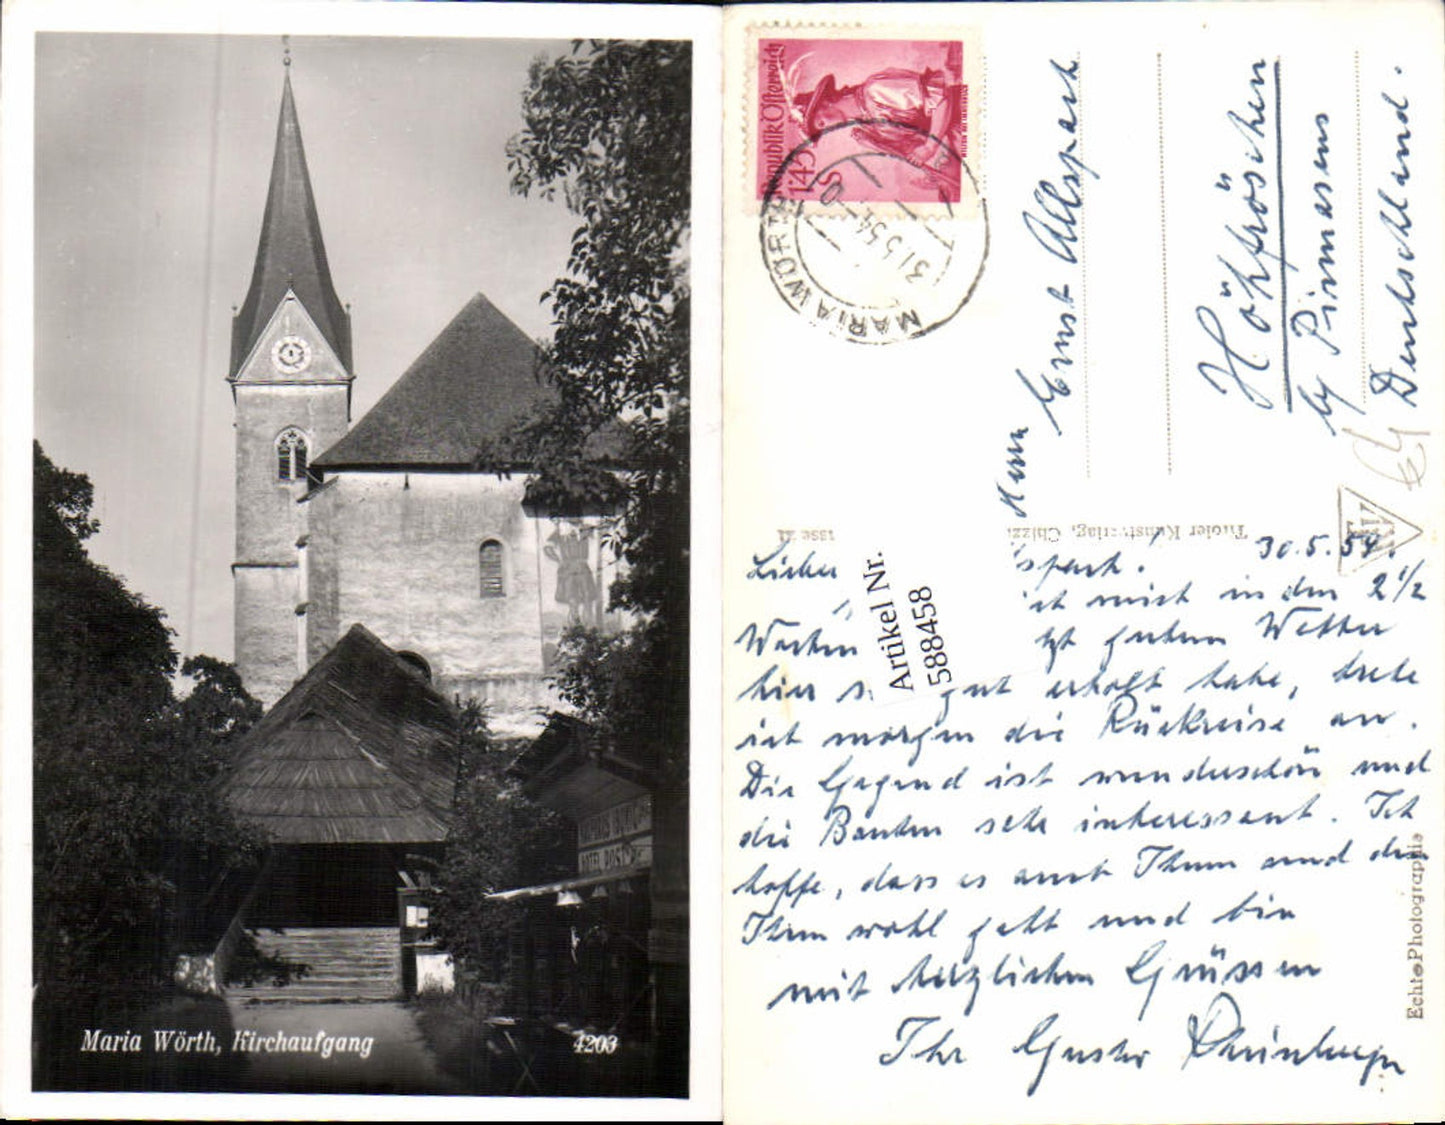 HOTEL POST
Maria Wörth, Kirchaufgang
4203
Republik Österreich
1'45
S
MARIA WÖRTH
31.5.54
Herrn
Ernst Allspach
Höhfröschen
by Pirmasens
Deutschland.
Tiroler Kunstverlag, Chizzali
Artikel Nr.
588458
30.5.54.
Lieber spach.
ich mich in den 2 1/2
Wochen gutem Wetter
hier gut erholt habe, trete
ich morgen die Rückreise an.
Die Gegend ist wunderschön und
die Bauten sehr interessant. Ich
hoffe, dass es auch Ihnen und den
Ihren wohl geht und bin
mit herzlichen Grüssen
Ihr Gustav
Echte Photographie